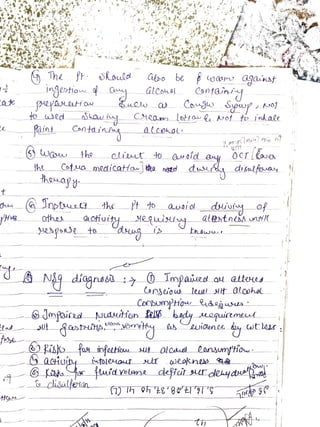 ④ The Pt should also be warn against
ingestion of any alcohol containing
preparation such as Cough syrup, not
to used shaving cream lotion & not to inhale
Paint containing alcohol.
⑤ Warn the client to avoid any OCT / over
the medication during disulfiram
therapy.
⑥ Instruct the pt to avoid driving or
other activity requiring alertness until
response to drug is known.
Nsg diagnosis :→ ① Impaired or altered
conscious level r/t alcohol
consumption & seizures.
② Impaired Nutrition less body requirement
r/t gastritis vomiting as evidance by wt loss.
③ Risk for infection r/t alcohol consumption.
④ activity intolerant r/t weakness
⑤ Risk for fluid volume deficit r/t dehydration
& disulfiram